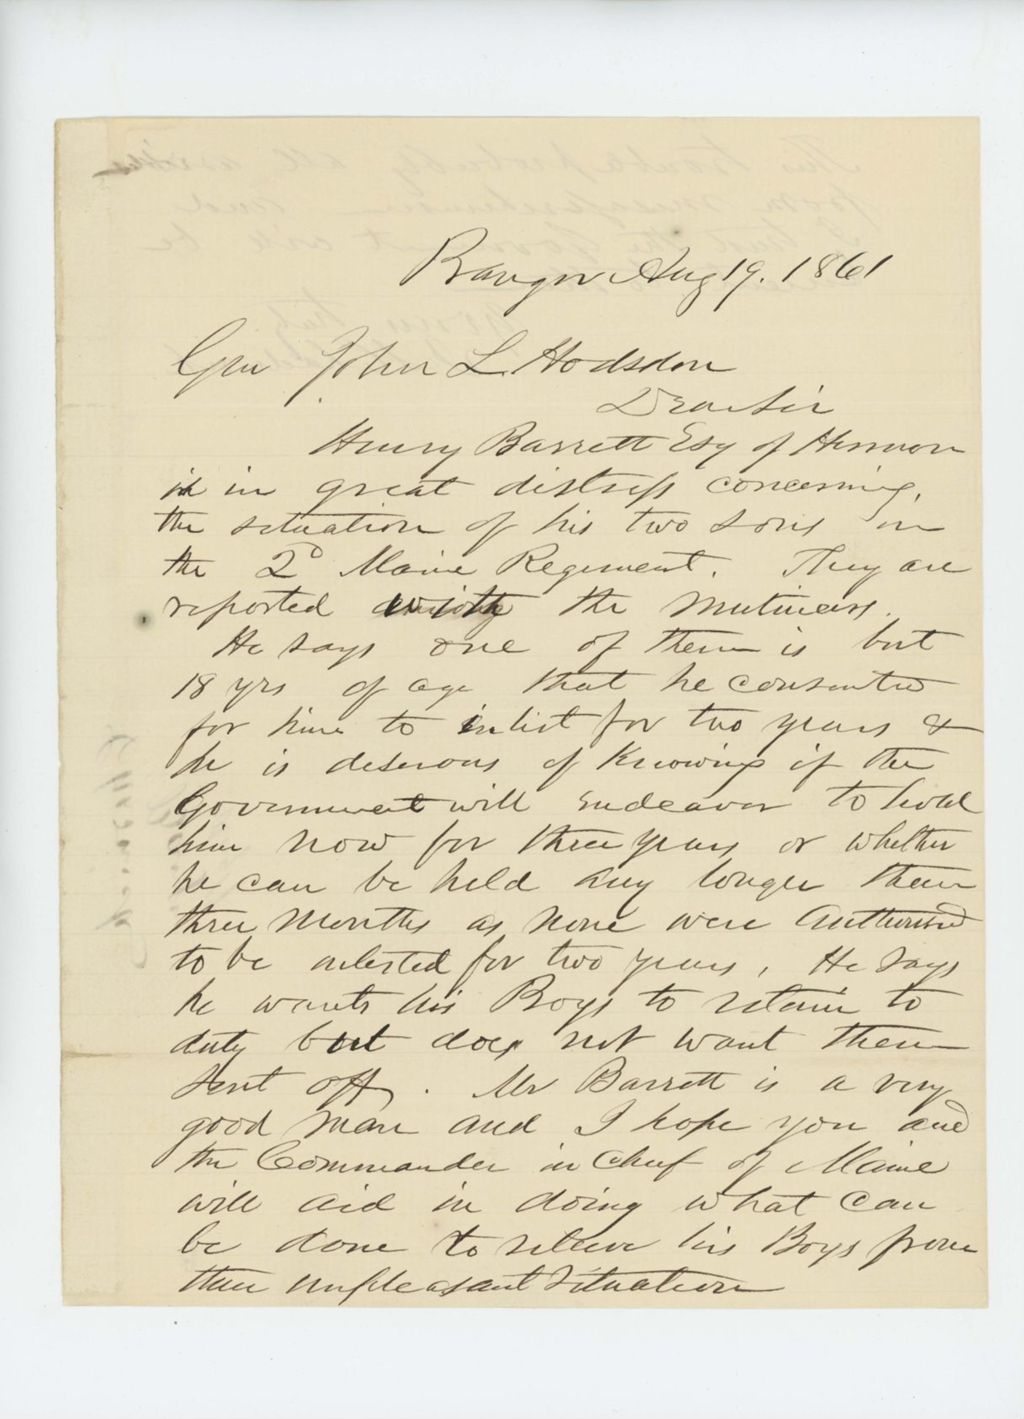 Bangor Aug 19. 1861
Gen John L Hodsdon
Dear Sir
Henry Barrett Esq of Hermon
is in great distress concerning,
the situation of his two sons in
the 2d Maine Regiment. They are
reported with the Mutineers.
He says one of them is but
18 yrs of age that he consented
for him to inlist for two years &
he is deserous of Knowing if the
Government will endeavor to hold
him now for three years or whether
he can be held any longer than
three Months as none were Authorised
to be enlested for two years, He says
he wants his Boys to retain to
duty but does not want them
sent off. Mr Barrett is a very
good man and I hope you and
the Commander in Chief of Maine
will aid in doing what can
be done to releive his Boys from
their unpleasant situation